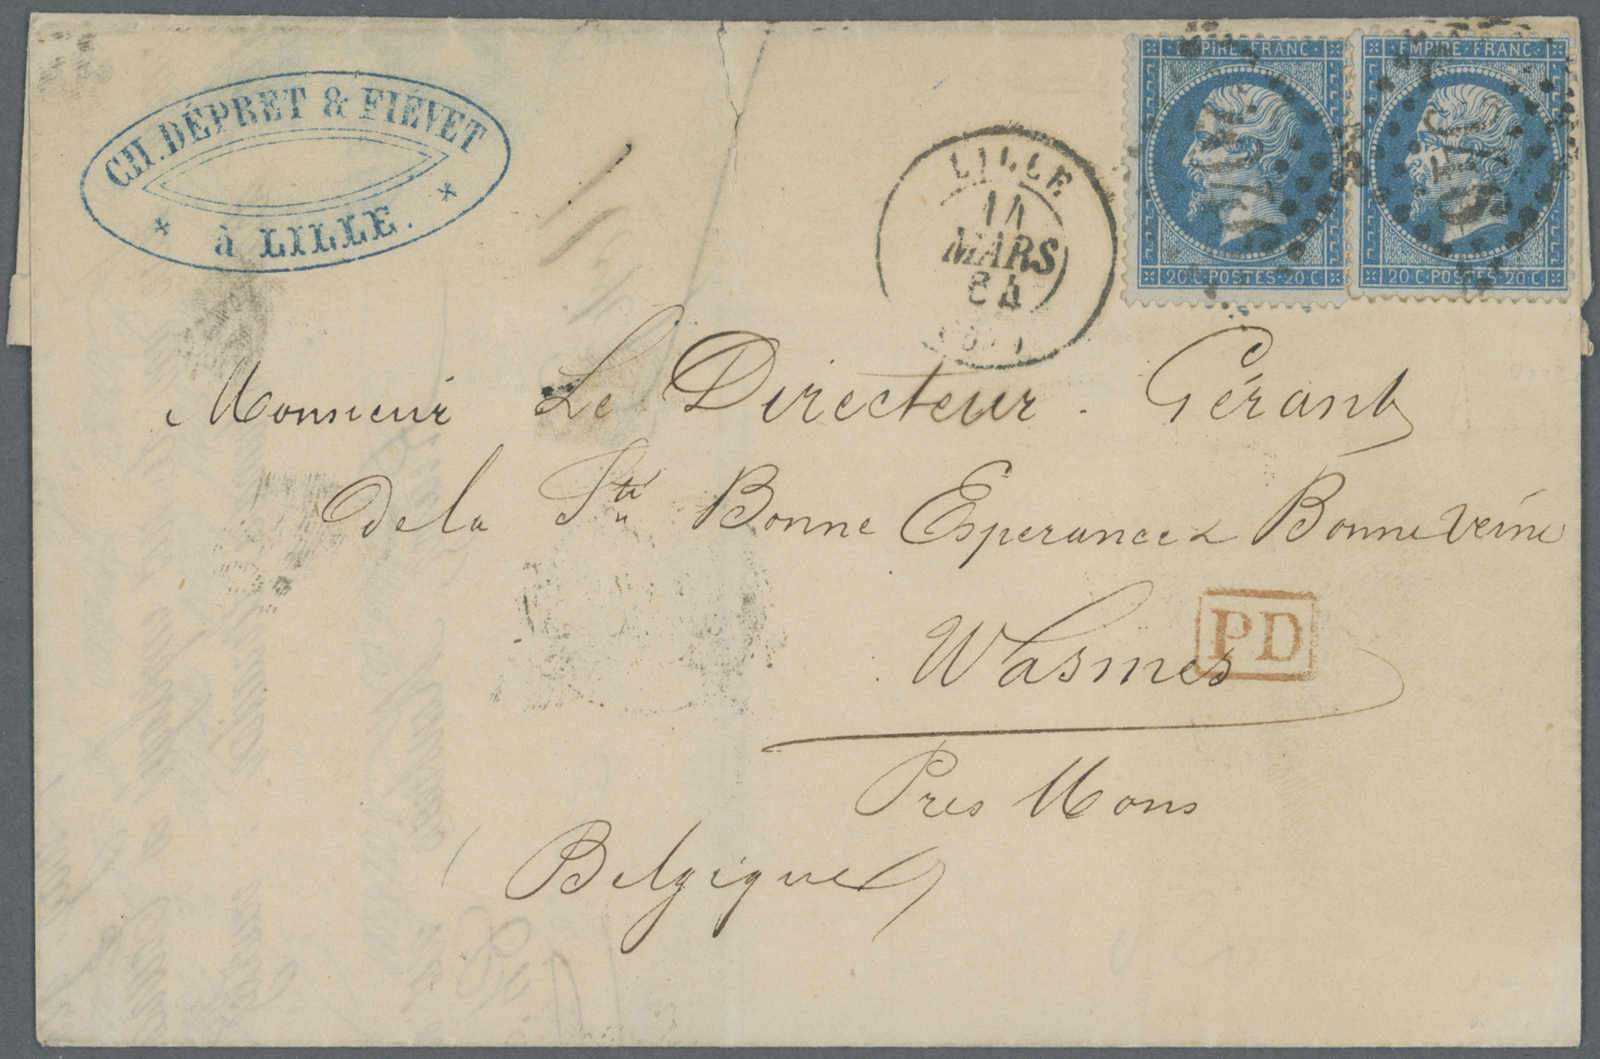 CH. DÉPRET & FIÉVET
à LILLE.
LILLE
14
MARS
64
EMPIRE·FRANC·
20 C·POSTES·20 C
EMPIRE·FRANC·
20 C·POSTES·20 C
Monsieur Le Directeur. Gérant
de la Sté Bonne Esperance & Bonne Veine
Wasmes
PD
Pres Mons
(Belgique)